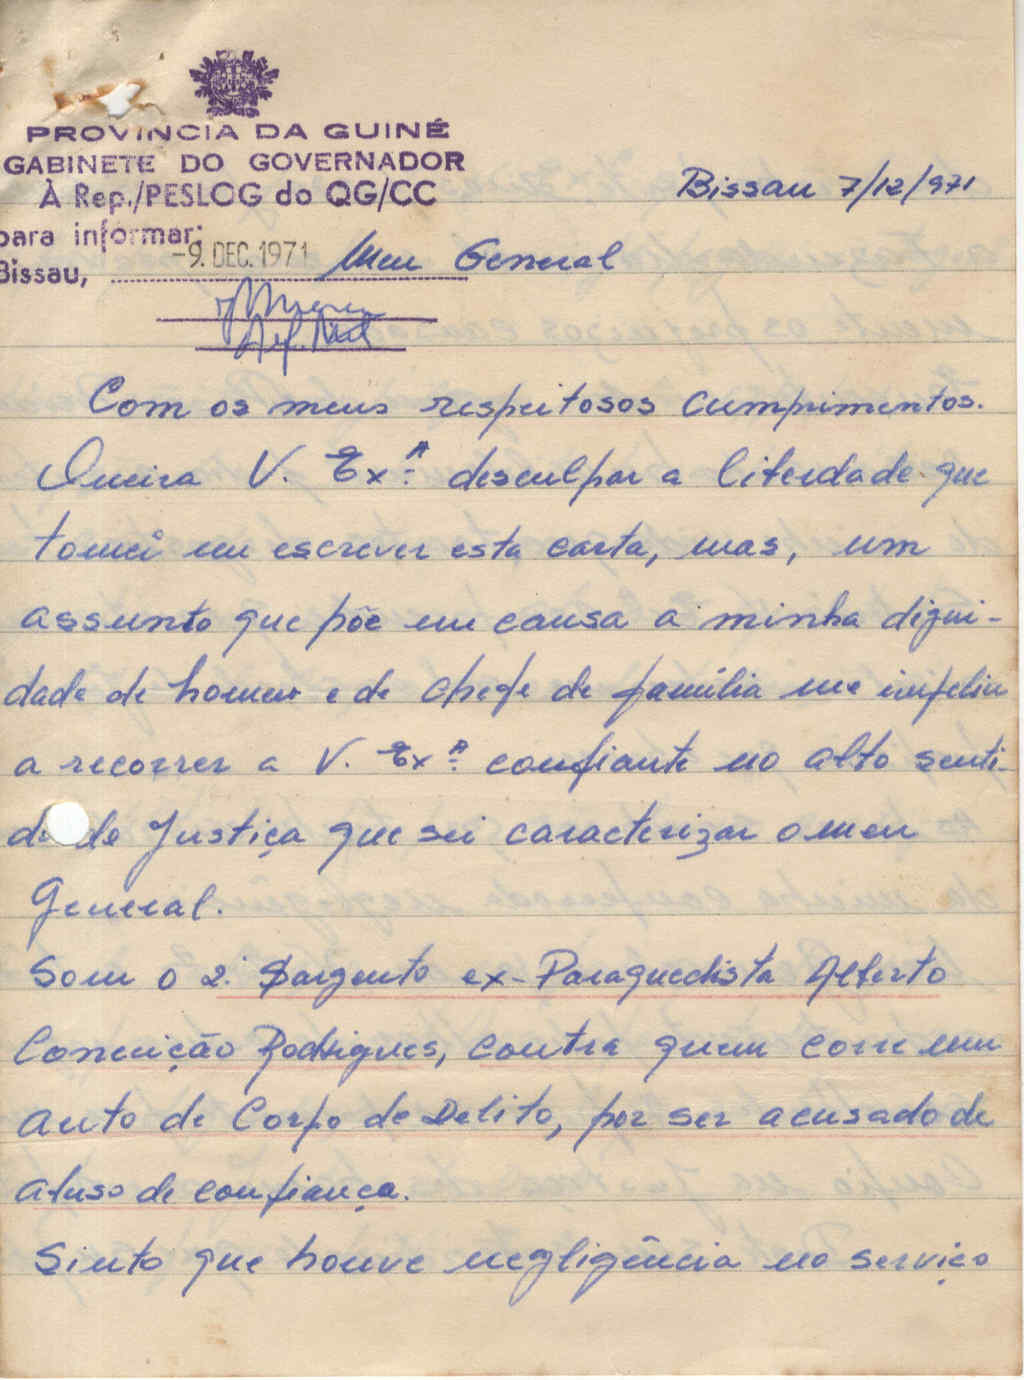 PROVÍNCIA DA GUINÉ
GABINETE DO GOVERNADOR
À Rep./PESLOG do QG/CC
para informar:
Bissau, -9. DEC. 1971
Bissau 7/12/971
Meu General
Com os meus respeitosos cumprimentos.
Queira V. Ex.ª desculpar a liberdade que
tomei em escrever esta carta, mas, um
assunto que põe em causa a minha digni-
dade de homem e de chefe de família me impeliu
a recorrer a V. Ex.ª confiante no alto senti-
do de Justiça que sei caracterizar o meu
General.
Sou o 2.º Sargento ex-Paraquedista Alberto
Conceição Rodrigues, contra quem corre um
auto de Corpo de Delito, por ser acusado de
abuso de confiança.
Sinto que houve negligência no serviço